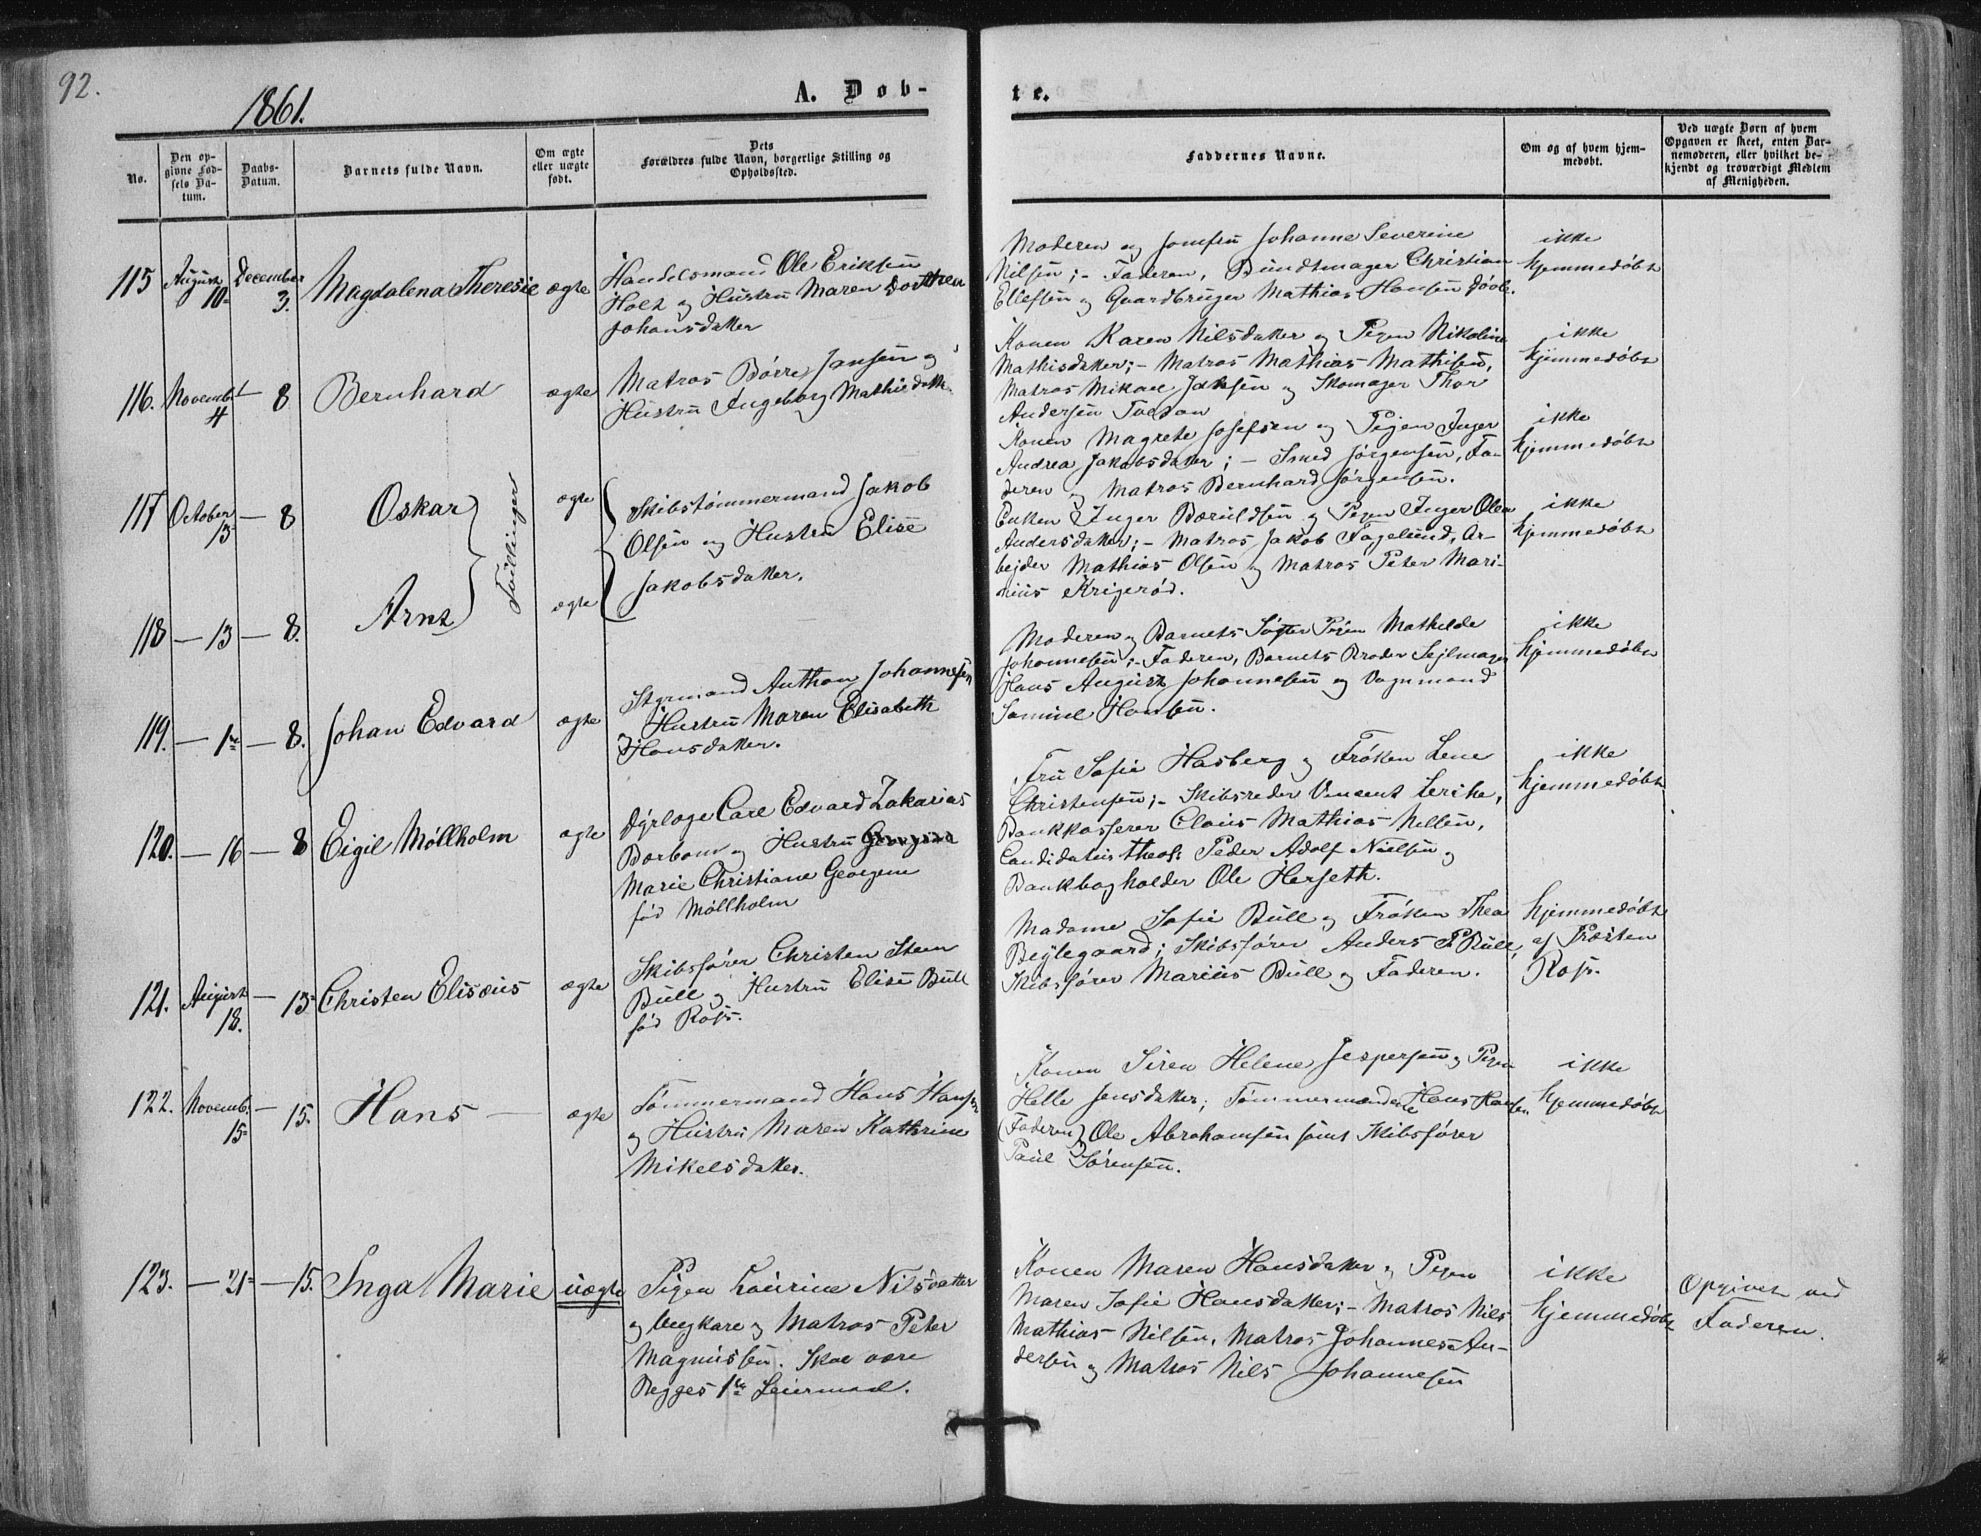 92.
1861.
A. Døb-
te.
No.
Den opgivne Fødsels Datum.
Daabs-Datum.
Barnets fulde Navn.
Om ægte eller uægte født.
Dets Forældres fulde Navn, borgerlige Stilling og Opholdssted.
Faddernes Navne.
Om og af hvem hjemmedøbt.
Ved uægte Børn af hvem Opgaven er skeet, enten Barnemoderen, eller hvilket bekjendt og troværdigt Medlem af Menigheden.
115 August 10 December 3. Magdalena Theresie ægte
Handelsmand Ole Eriksen
Holt og Hustru Maren Dorthea
Johansdatter
Moderen og Jomfru Johanne Severine
Nilsen; - Faderen, Bundtmager Christian
Ellefsen og Gaardbruger Mathias Hansen
ikke
hjemmedøbt
116. Novemb. 4 — 8 Bernhard ægte
Matros Børre Jansen og
Hustru Ingeborg Mathisdatt.
Konen Karen Nilsdatter og Pigen Nikoline
Mathisdatter; - Matros Mathias Mathisen,
Matros Mikael Jansen og Skomager Thor
Andersen
ikke
hjemmedøbt
117 October 13 — 8 Oskar ægte
Tvillinger
Skibstømmermand Jakob
Olsen og Hustru Elise
Jakobsdatter.
Konen Magrete Josefsen og Pigen Inger
Andrea Jakobsdatter; - Smed Jørgensen, Fa-
deren og Matros Bernhard Jørgensen.
ikke
hjemmedøbt
118 — 13 — 8. Arnt ægte
Enken Inger Bæruldsen og Pigen Inger Olea
Andersdatter; - Matros Jakob Fagelund, Ar-
bejder Mathias Olsen og Matros Peter Mari-
nius Krigerød.
ikke
hjemmedøbt
119. — 1 — 8. Johan Edvard ægte
Styrmand Anthon Johannesen
og Hustru Maren Elisabeth
Hansdatter.
Moderen og Barnets Søster Pigen Mathilde
Johannesen; - Faderen, Barnets Broder Sejlmager
Hans August Johannesen og Vognmand
Samuel Hansen.
ikke
hjemmedøbt
120. — 16 — 8 Eigil Møllholm ægte
Dyrlæge Carl Edvard Zakarias
Barbom og Hustru
Marie Christiane Georgine
fød Møllholm
Fru Sofie Hasberg og Frøken Lene
Christensen; - Skibsreder Vincent Lerche,
Bankkasserer Claus Mathias Nilsen,
Candidatus theol: Peder Adolf Nielsen og
Bankbogholder Ole Herseth.
ikke
hjemmedøbt
121. August 18. — 15 Christen Elisæus ægte
Skibsfører Christen Steen
Bull og Hustru Elise Bull
fød Rojs.
Madame Sofie Bull og Frøken Thea
Bejlegaard; Skibsfører Anders P. Bull,
Skibsfører Marius Bull og Faderen.
hjemmedøbt
af Præsten
Rojs.
122. Novemb. 15 — 15. Hans — ægte
Tømmermand Hans Hansen
og Hustru Maren Kathrine
Mikelsdatter.
Konen Siren Helene Jespersen og Pigen
Helle Jensdatter; Tømmermændene Hans Hansen
(Faderen) Ole Abrahamsen samt Skibsfører
Paul Sørensen.
ikke
hjemmedøbt
123. — 21 — 15. Inga Marie uægte
Pigen Laurine Nilsdatter
og Ungkarl og Matros Peter
Magnussen. Skal være
Begges 1ste Leiermaal.
Konen Maren Hansdatter og Pigen
Maren Sofie Hansdatter; - Matros Nils
Mathias Nilsen, Matros Johannes An-
dersen og Matros Nils Johannesen
ikke
hjemmedøbt
Opgivet ved
Faderen.